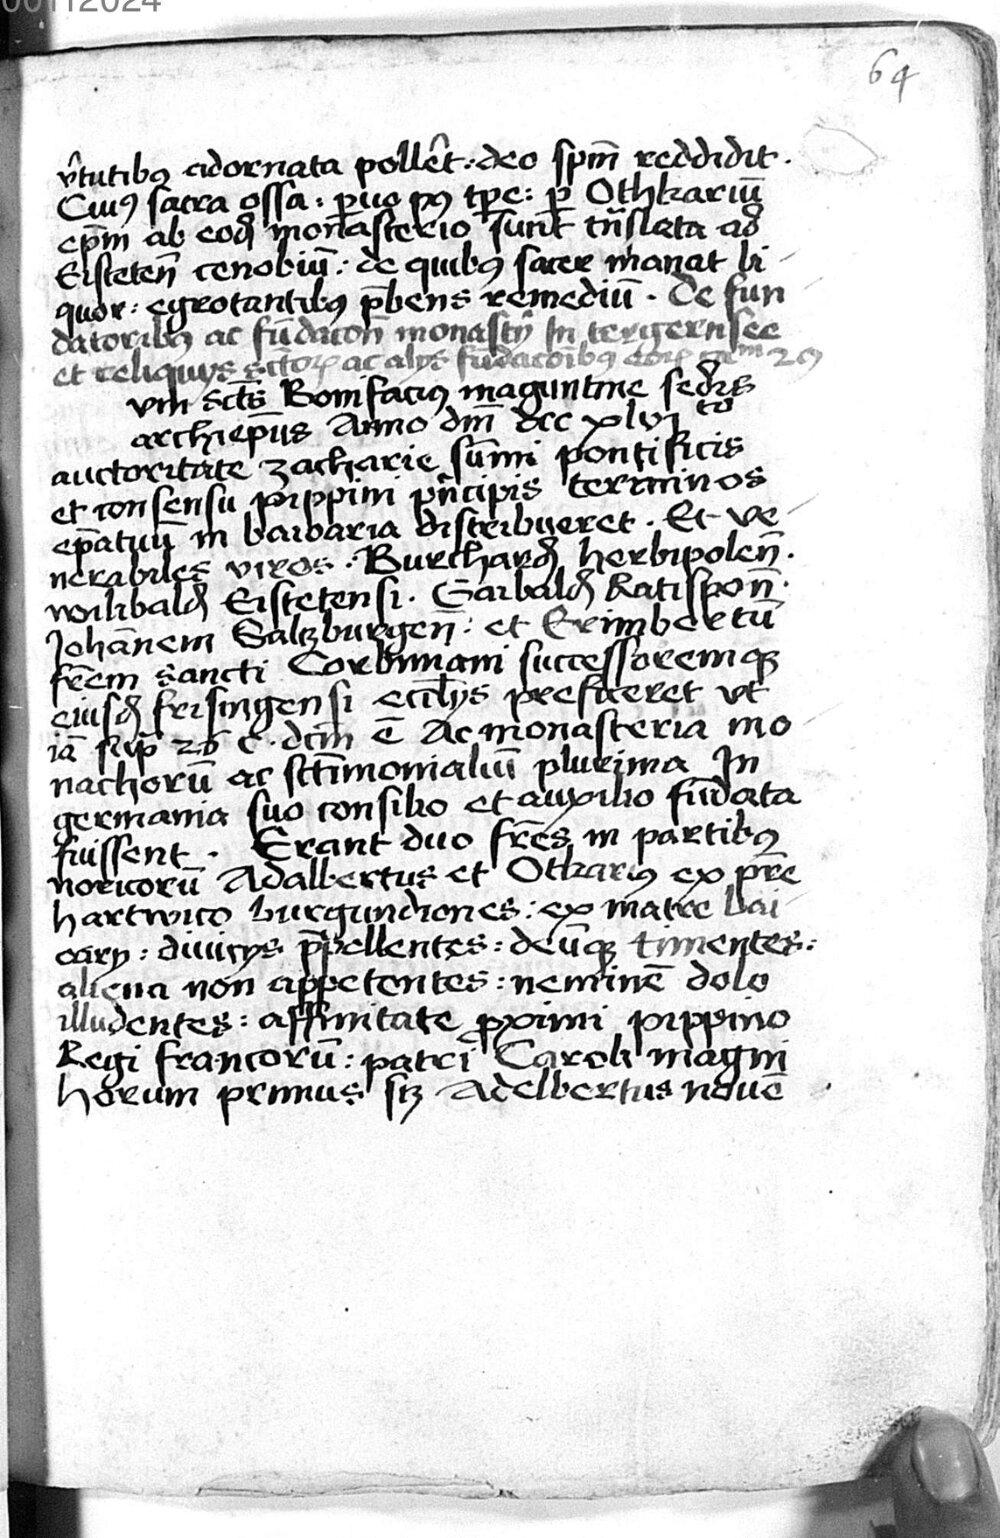 00112024
64
v̂tutibꝰ adornata pollêt · deo spm̄ reddidit ·
Cuiꝰ sacra ossa : ꝑuo pꝰ tp̄e : ꝑ Othkariū
ep̄m ab eod̄ monasterio sunt tn̄slata ad
Eisteten̄ cenobiū : de quibꝰ sacer manat li
quor : egrotantibꝰ p̄bens remediū · De fun
datoribꝰ ac fūdacōn̄ monastʼy In tegernsee
et reliquijs sctōꝝ ac alijs fūdacōibꝰ eoꝝ
vm sct̄s Bonifaciꝰ maguntine sedis
archiep̄us Anno dm̄ dcc xlvj to
auctoritate zacharie sum̄i pontificis
et consensu pippini pn̄cipis terminos
ep̄atuū in baioaria distribueret · Et ve
nerabiles viros · Burchard̄ herbipolen̄ ·
wilibald̄ Eistetensi · Gaibald̄ Ratispon̄ ·
Johānem Saltzburgen̄ : et Erimbertū
frēm sancti Corbiniani successoremqꝫ
eiusd̄ frisingensi eccl̄ijs preficeret vt
iā sup̄ 26 c · dcm̄ ē Ac monasteria mo
nachorū ac sctīmonialiū plurima In
germania suo consilio et auxilio fūdata
fuissent · Erant duo frēs in partibꝰ
noricorū Adalbertus et Otkariꝰ ex prē
hartwico burgundiones : ex matre bai
oarij : diuicijs p̄pellentes : deūqꝫ timentes :
aliena non appetentes : neminē dolo
illudentes : affinitate ꝓximi pippino
Regi francorū : patri Caroli magni
horum primus sꝫ Adelbertus nouē